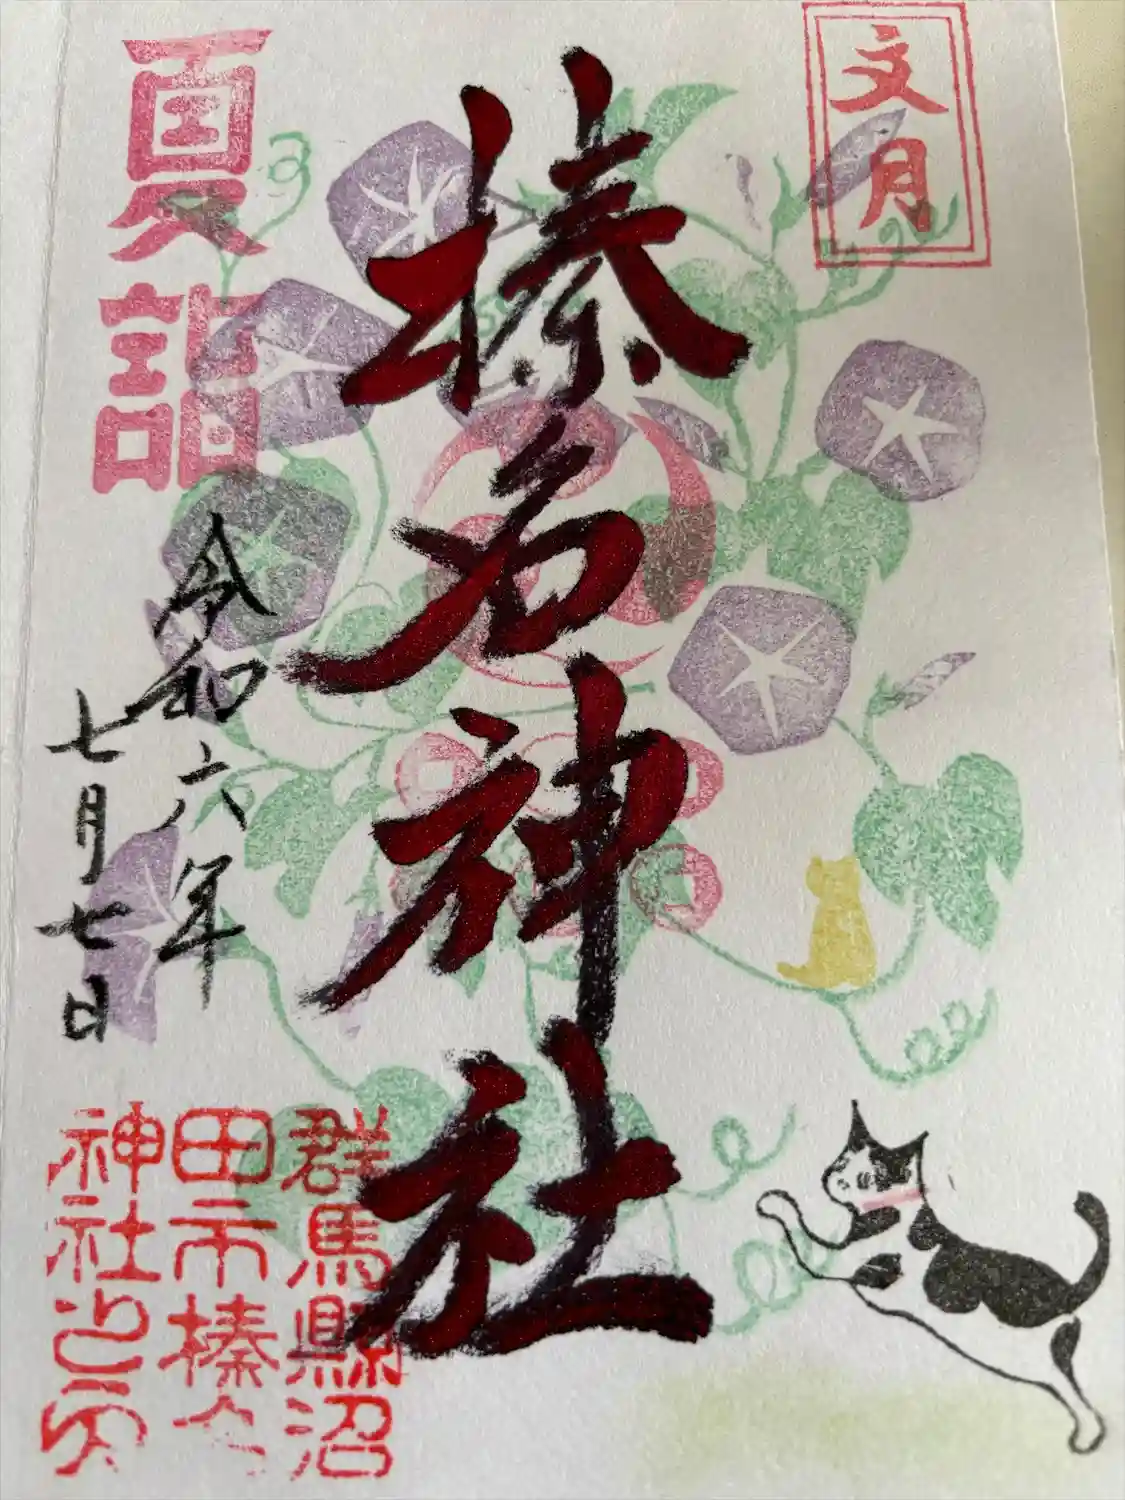 文月
榛名神社
夏詣
令和六年
七月七日
群馬縣沼
田市榛名
神社之印